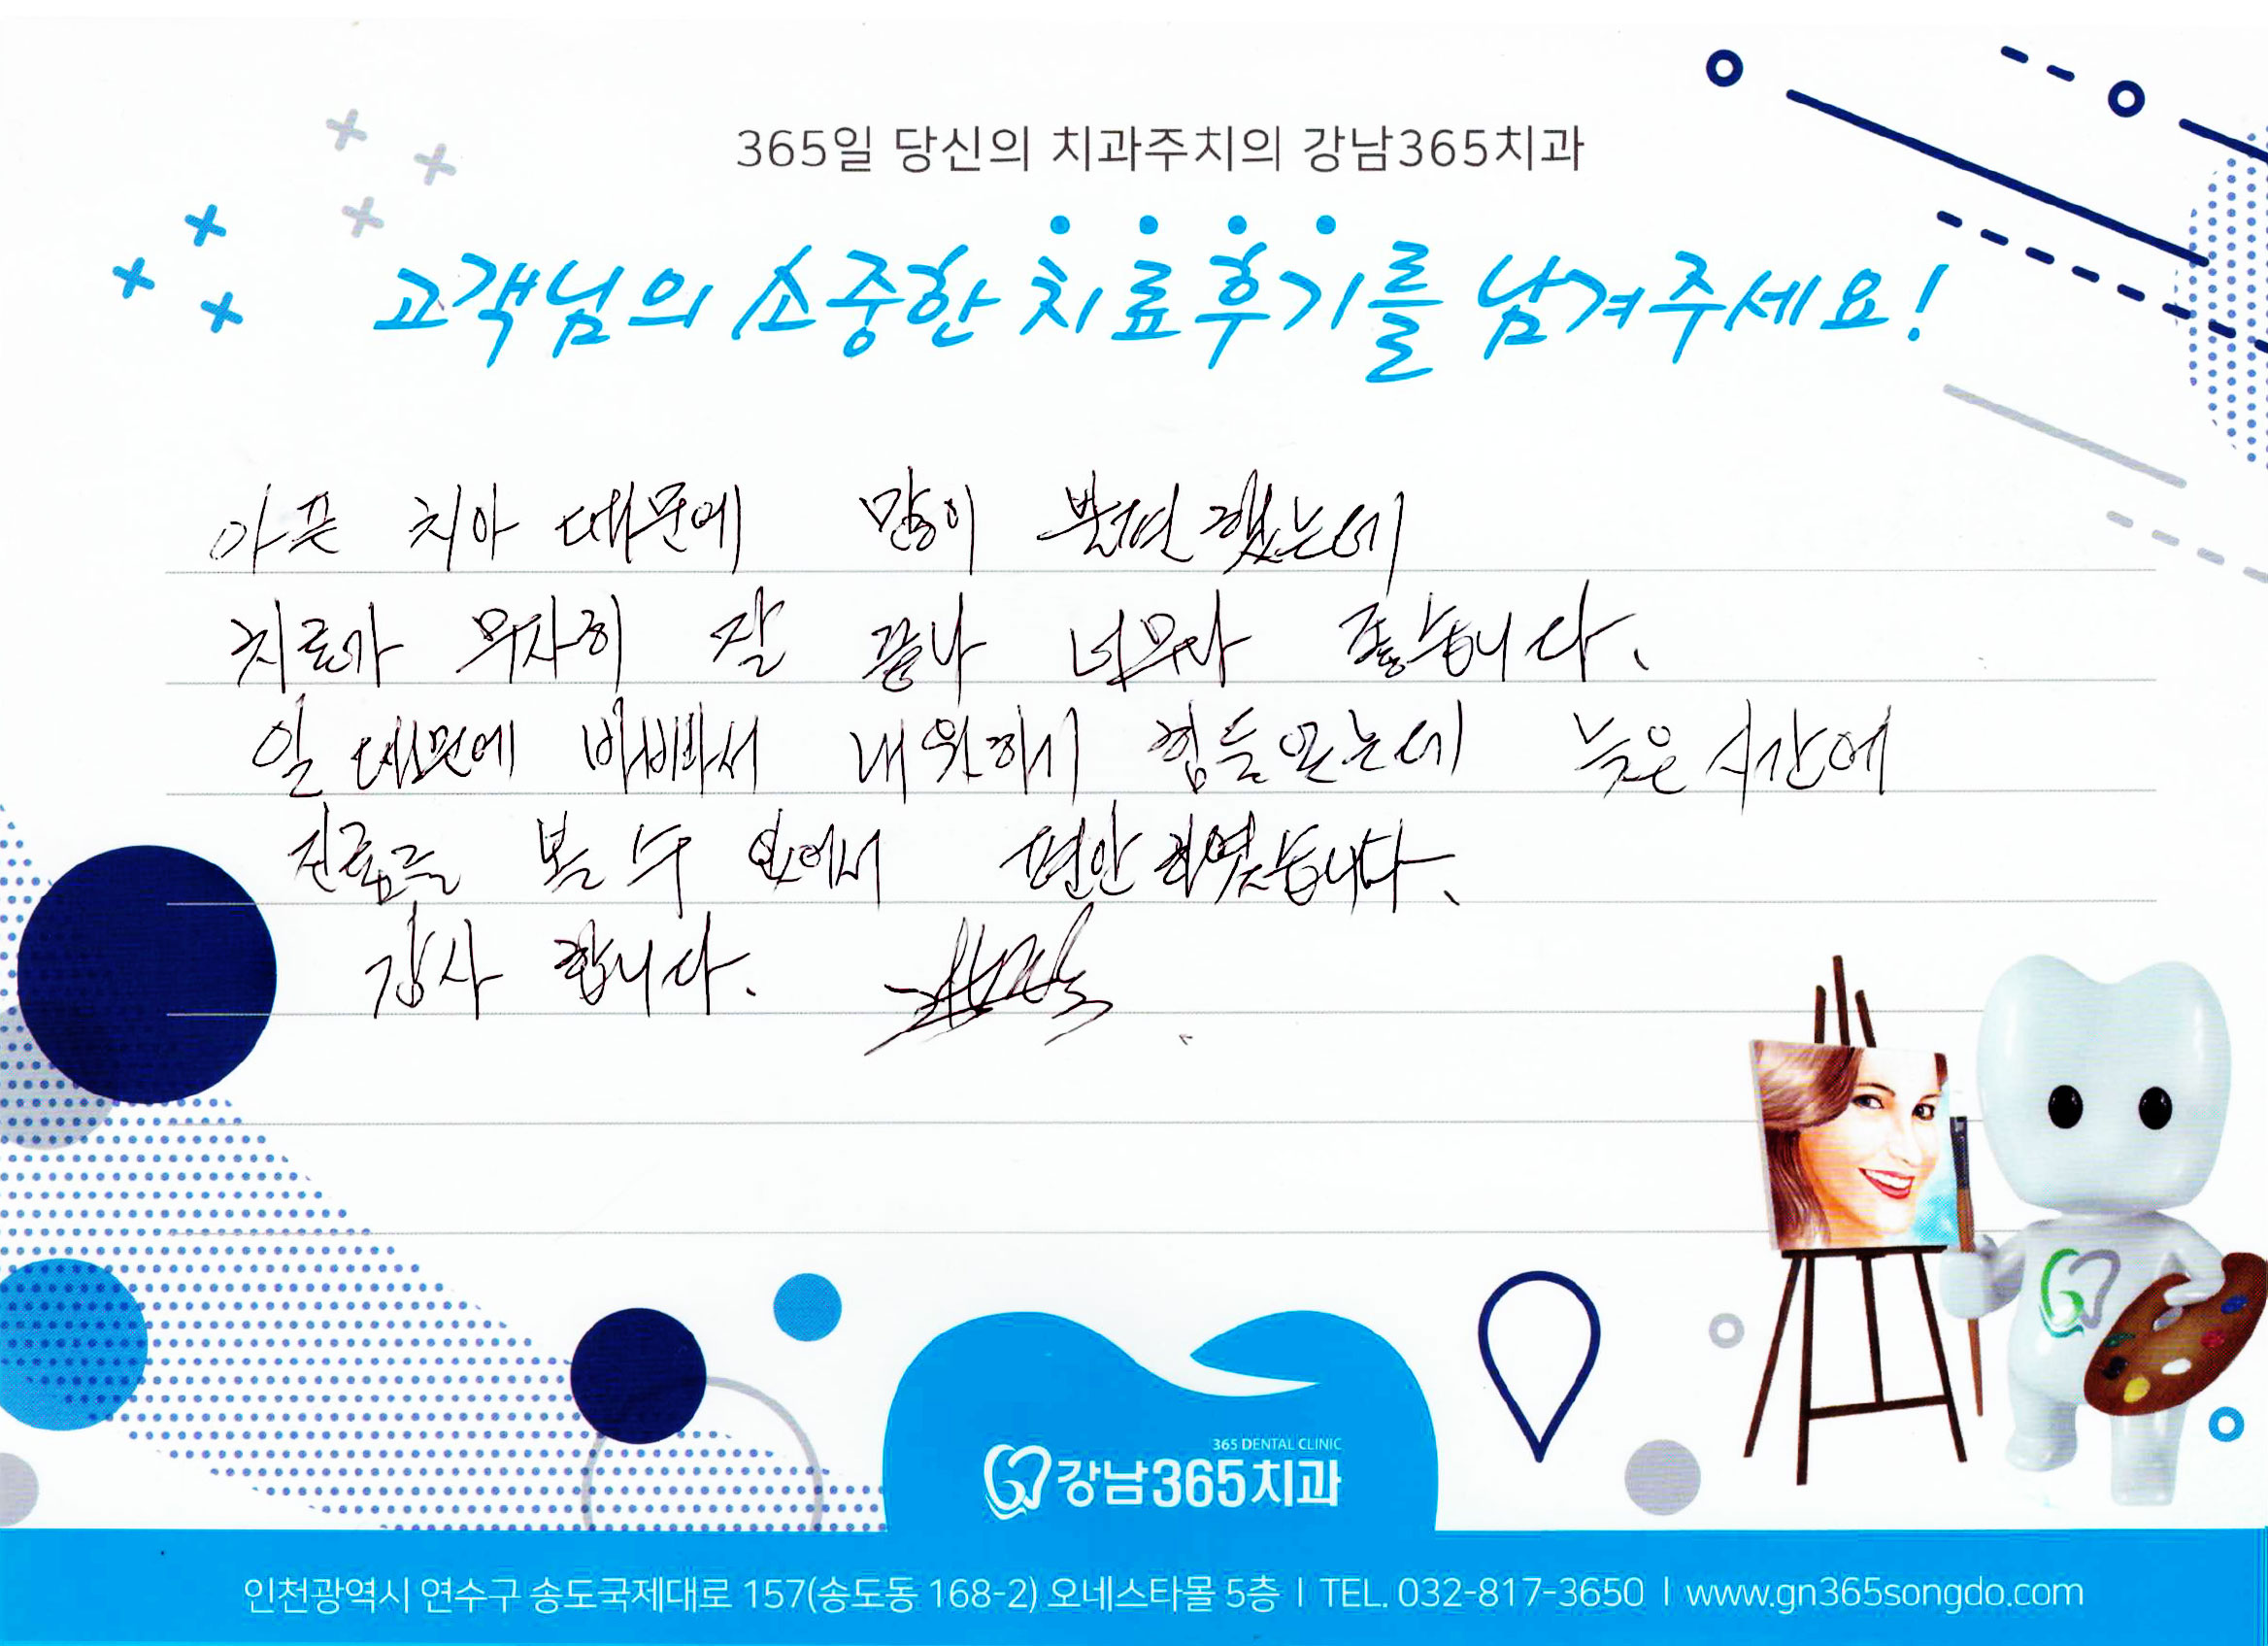 365일 당신의 치과주치의 강남365치과
고객님의 소중한 치료후기를 남겨주세요!
아픈 치아 때문에 많이 불편했는데
치료가 무사히 잘 끝나 너무나 좋습니다.
일 때문에 바빠서 내원하기 힘들었는데 늦은 시간에
진료를 볼 수 있어서 편안하였습니다.
감사 합니다.
365 DENTAL CLINIC
강남365치과
인천광역시 연수구 송도국제대로 157(송도동 168-2) 오네스타몰 5층 | TEL. 032-817-3650 | www.gn365songdo.com